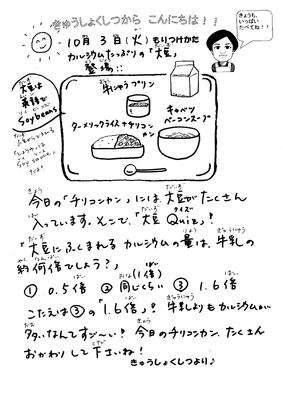 きゅうしょくしつから こんにちは！！
きょうも、
いっぱい
たべてね！！
10月 3日(火) もりつけかた
カルシウムたっぷりの「大豆」
登場!!
大豆は
英語で
Soybeans
牛にゅうプリン
ターメリックライス+チリコンカン
キャベツ
ベーコンスープ
今日の「チリコンカン」には、大豆がたくさん
入っています。そこで、「大豆 Quiz」！
「大豆にふくまれるカルシウムの量は、牛乳の
約何倍でしょう？」
① 0.5倍 ② 同じくらい(1倍) ③ 1.6倍
こたえは③の「1.6倍」！牛乳よりもカルシウムが
多いなんてすご〜い！今日のチリコンカン、たくさん
おかわりして下さいね！
きゅうしょくしつより♪